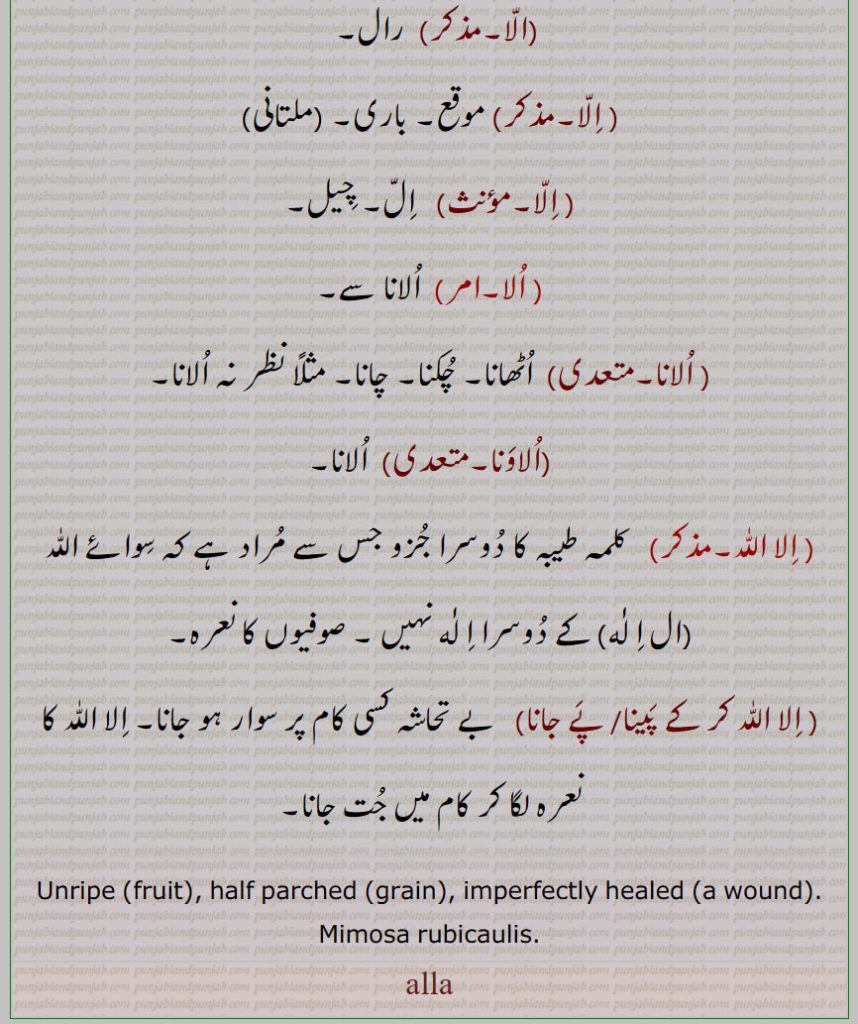 (الّا۔مذکر) رال۔
( اِلّا۔مذکر) موقع۔ باری۔ (ملتانی)
( اِلّا۔مؤنث) اِلّ۔ چِیل۔
( اُلا۔امر) اُلانا سے۔
( اُلانا۔متعدی) اُٹھانا۔ چُکنا۔ چانا۔ مثلاً نظر نہ اُلانا۔
(اُلاوَنا۔متعدی) اُلانا۔
( اِلا اللہ۔مذکر) کلمہ طیبہ کا دُوسرا جُزو جس سے مُراد ہے کہ سِوائے اللہ
(ال اِ لٰہ) کے دُوسرا اِ لٰہ نہیں ۔ صوفیوں کا نعرہ۔
( اِلا اللہ کر کے پَینا/ پَے جانا) بے تحاشہ کسی کام پر سوار ہو جانا۔ اِلا اللہ کا
نعرہ لگا کر کام میں جُت جانا۔
Unripe (fruit), half parched (grain), imperfectly healed (a wound).
Mimosa rubicaulis.
alla